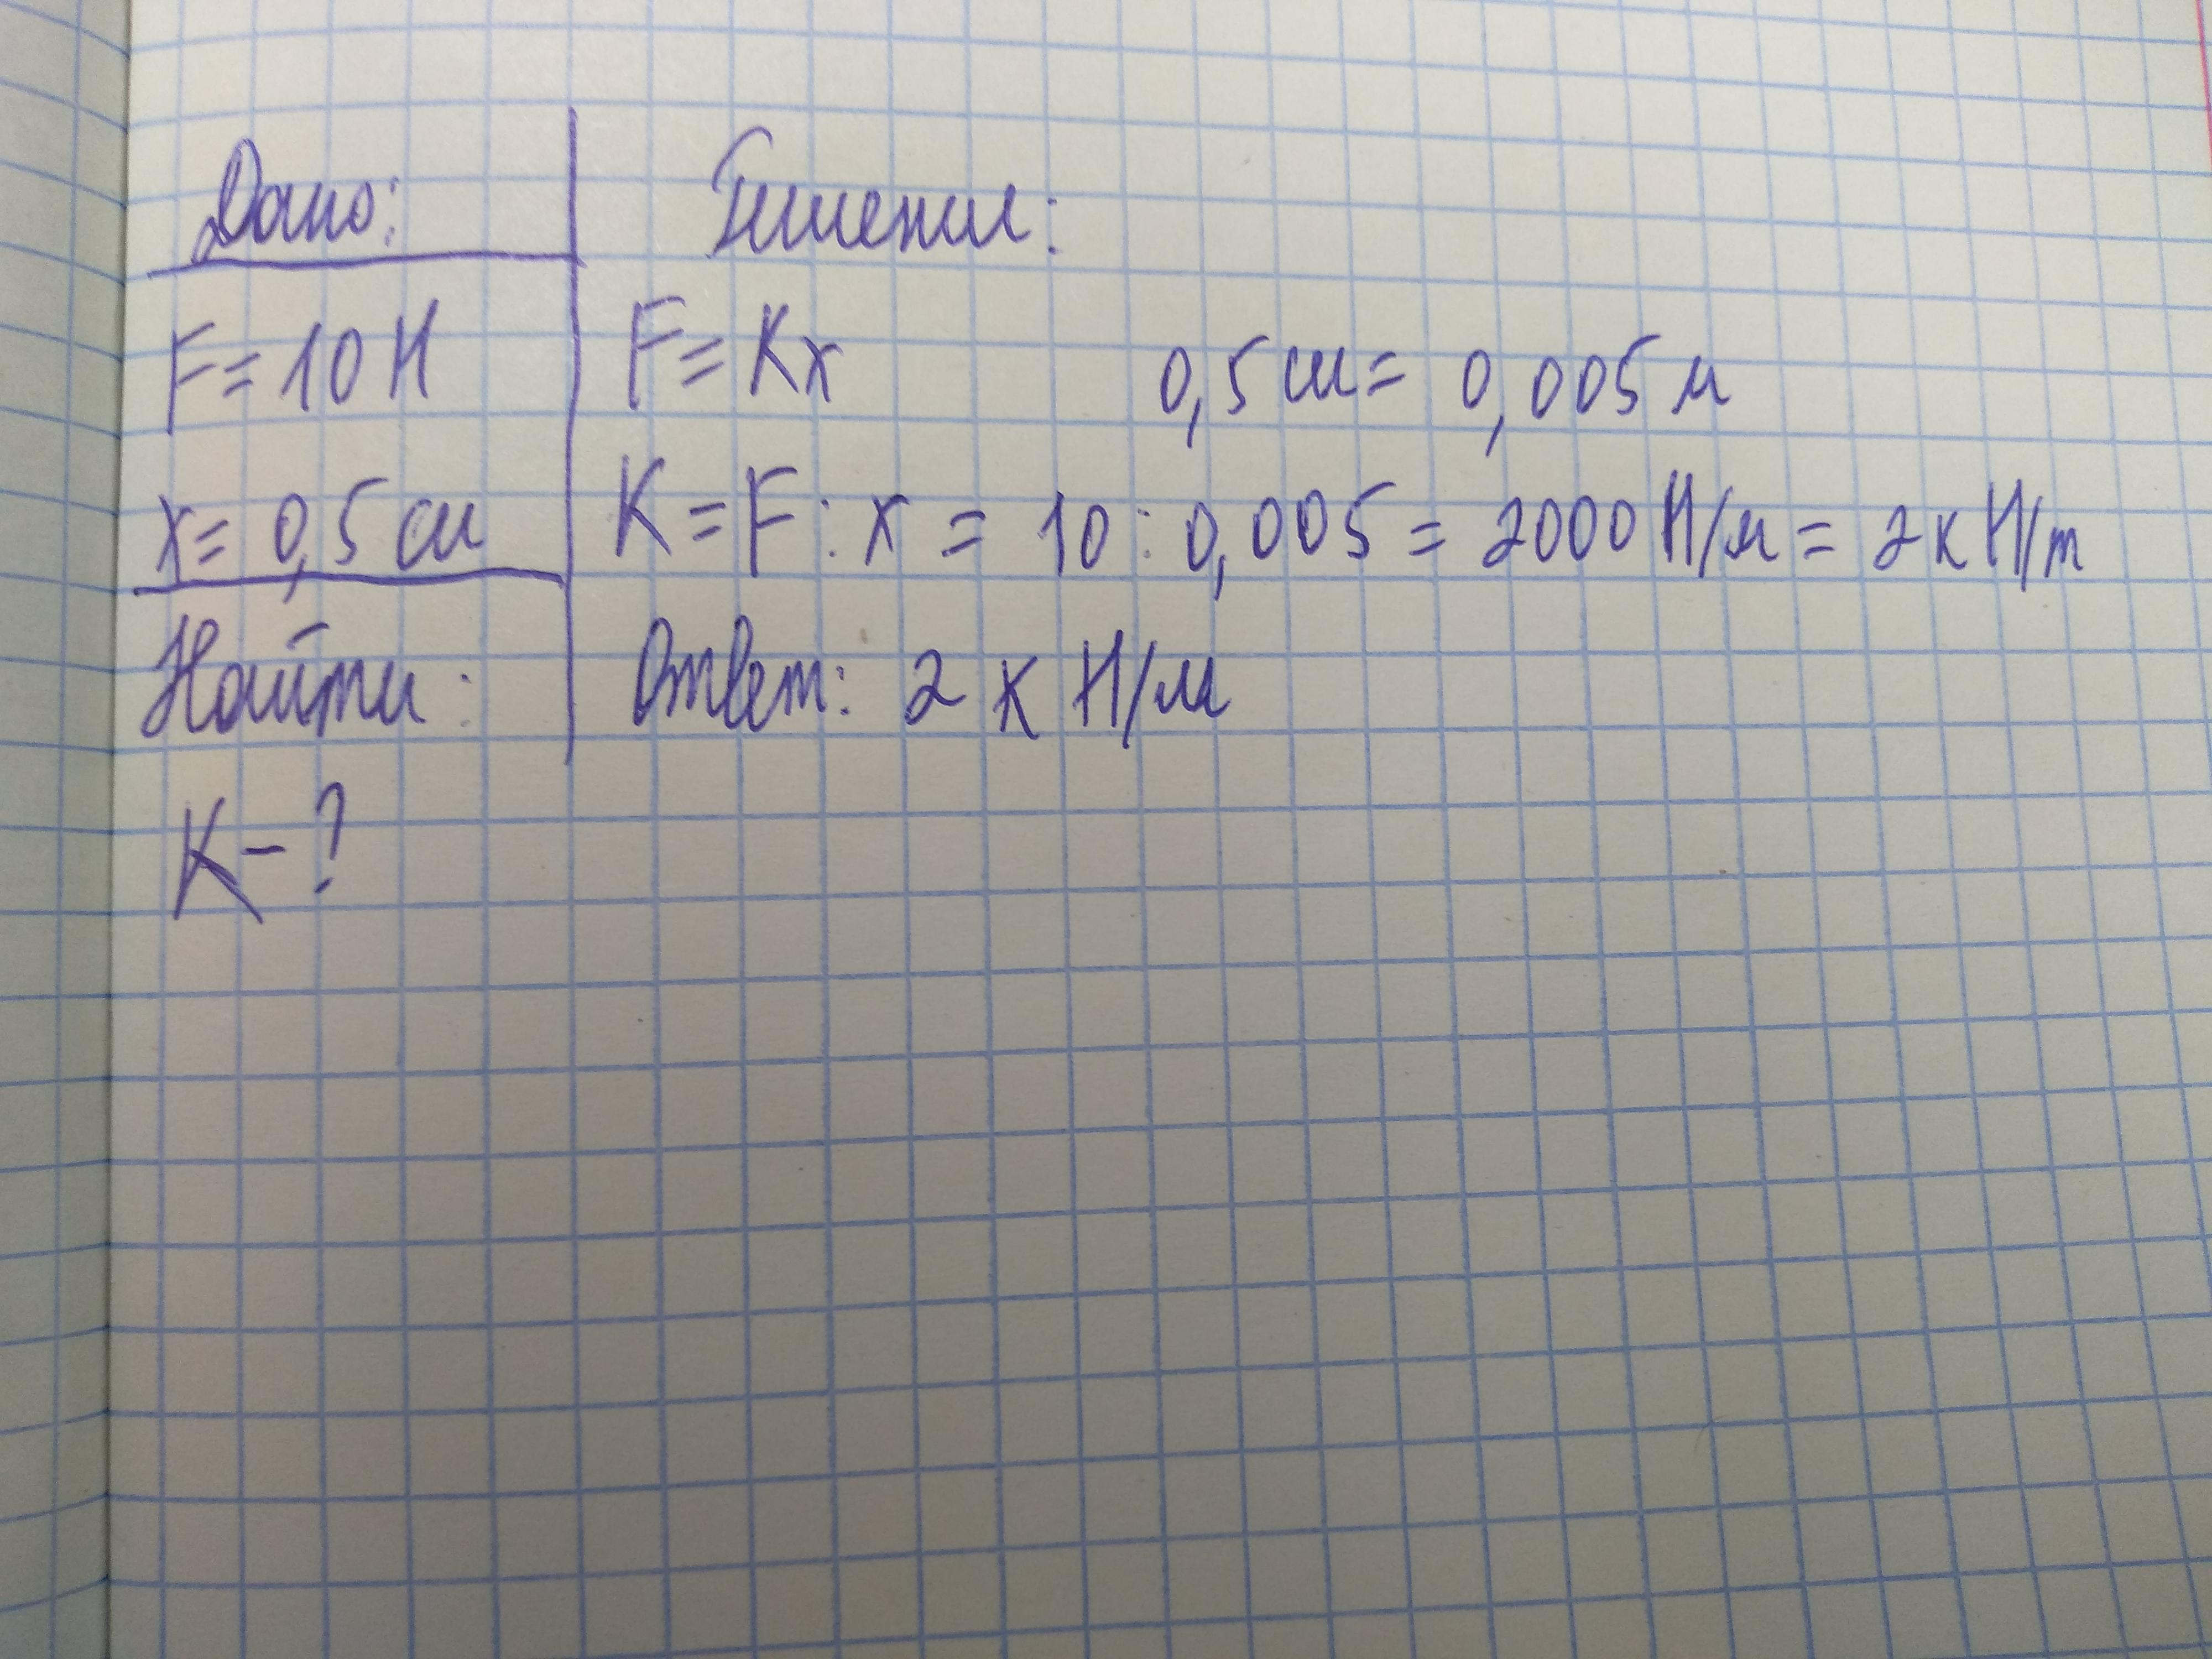 Дано:
F = 10 Н
x = 0,5 см
Найти:
K - ?
Решение:
F = Kx 0,5 см = 0,005 м
K = F : x = 10 : 0,005 = 2000 Н/м = 2 к Н/m
Ответ: 2 к Н/м